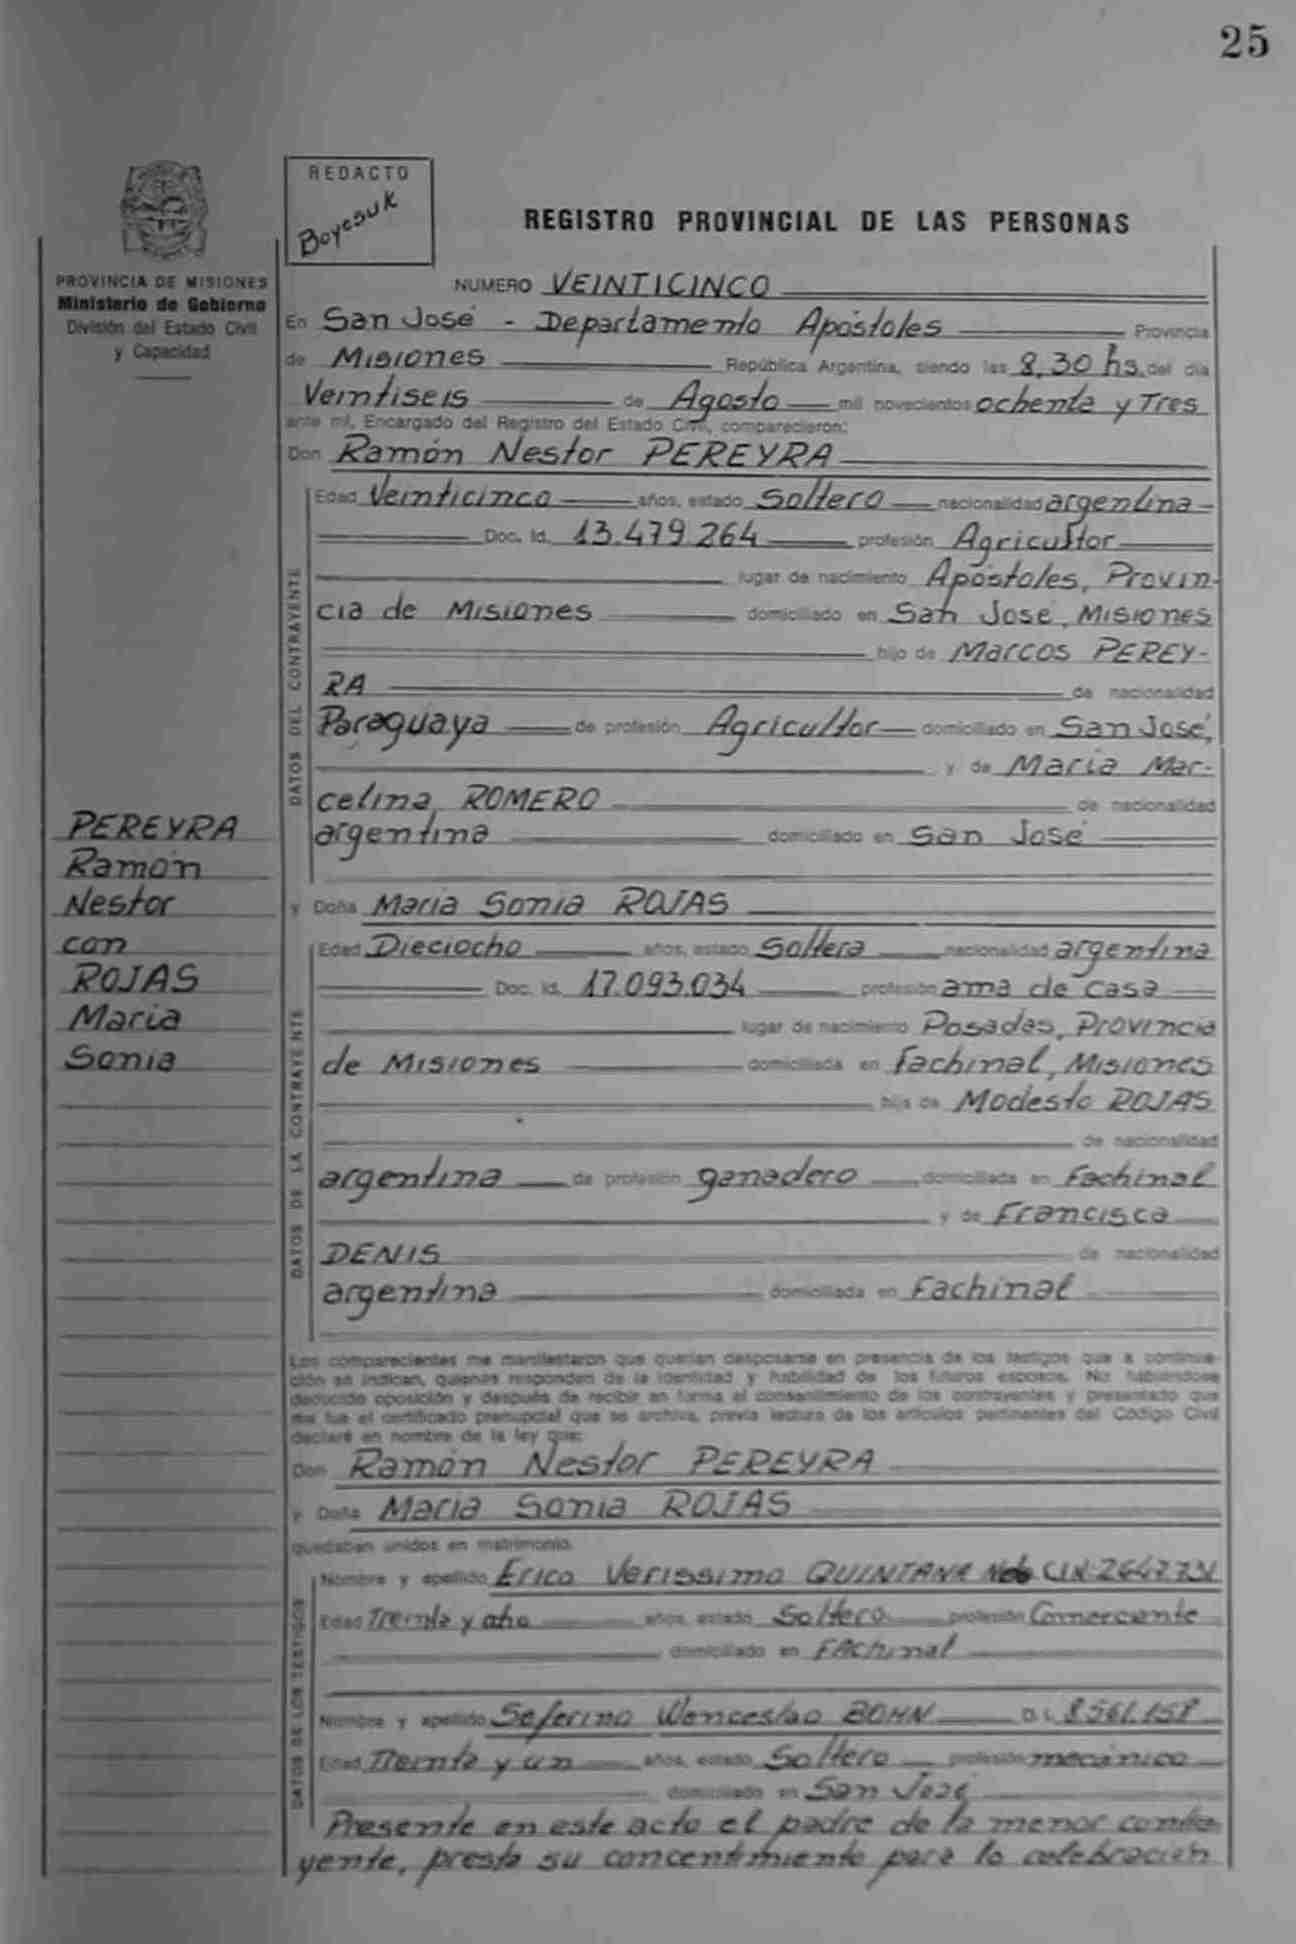 25
REDACTO
Boyesuk
REGISTRO PROVINCIAL DE LAS PERSONAS
PROVINCIA DE MISIONES
Ministerio de Gobierno
División del Estado Civil
y Capacidad
NUMERO VEINTICINCO
En San José - Departamento Apóstoles Provincia
de Misiones República Argentina, siendo las 8,30 hs. del día
Veintiseis de Agosto mil novecientos ochenta y Tres
ante mí, Encargado del Registro del Estado Civil, comparecieron:
Don Ramón Nestor PEREYRA
DATOS DEL CONTRAYENTE
Edad Veinticinco años, estado Soltero nacionalidad argentina
Doc. Id. 13.479.264 profesión Agricultor
lugar de nacimiento Apóstoles, Provin-
cia de Misiones domiciliado en San José, Misiones
hijo de Marcos PEREY-
RA de nacionalidad
Paraguaya de profesión Agricultor domiciliado en San José,
y de Maria Mar-
celina ROMERO de nacionalidad
argentina domiciliado en San José
PEREYRA
Ramón
Nestor
con
ROJAS
Maria
Sonia
y Doña Maria Sonia ROJAS
DATOS DE LA CONTRAYENTE
Edad Dieciocho años, estado Soltera nacionalidad argentina
Doc. Id. 17.093.034 profesión ama de casa
lugar de nacimiento Posadas, Provincia
de Misiones domiciliada en Fachinal, Misiones
hija de Modesto ROJAS
de nacionalidad
argentina de profesión ganadero domiciliada en Fachinal
y de Francisca
DENIS de nacionalidad
argentina domiciliada en Fachinal
Los comparecientes me manifestaron que querían desposarse en presencia de los testigos que a continua-
ción se indican, quienes responden de la identidad y habilidad de los futuros esposos. No habiéndose
deducido oposición y después de recibir en forma el consentimiento de los contrayentes y presentado que
me fue el certificado prenupcial que se archiva, previa lectura de los artículos pertinentes del Código Civil
declaré en nombre de la ley que:
Don Ramón Nestor PEREYRA
y Doña Maria Sonia ROJAS
quedaban unidos en matrimonio.
DATOS DE LOS TESTIGOS
Nombre y apellido Erico Verissimo QUINTANA
Edad Treinta y años, estado Soltero profesión Comerciante
domiciliado en FAchinal
Nombre y apellido Seferino Wenceslao BOHN D.I. 8561.158
Edad Treinta y un años, estado Soltero profesión mecánico
domiciliado en San José
Presente en este acto el padre de la menor contra-
yente, presta su concentimiento para la celebración